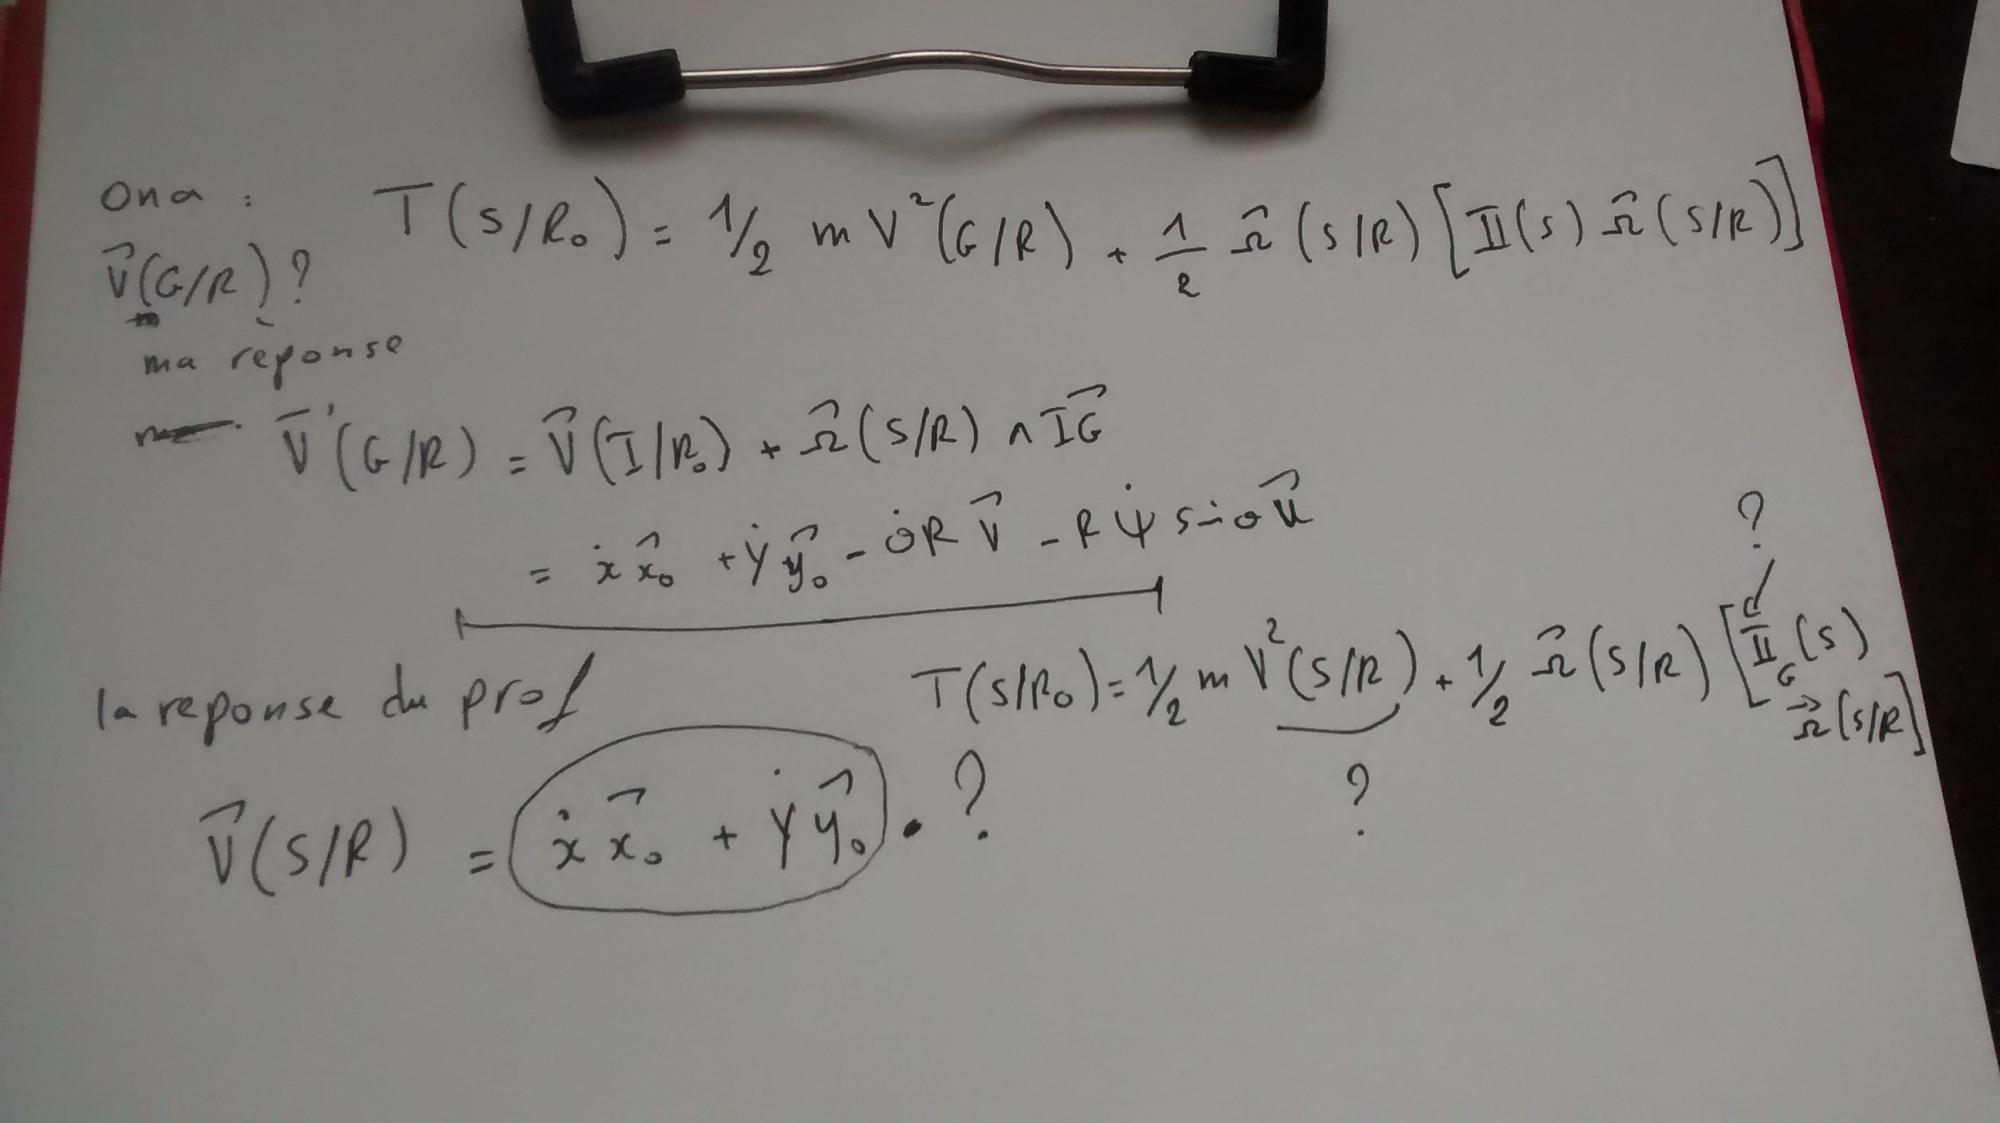 On a : T(S/R₀) = 1/2 m V²(G/R) + 1/2 Ω⃗(S/R) [II(S) Ω⃗(S/R)]
V⃗(G/R) ?
ma réponse
V⃗(G/R) = V⃗(I/R₀) + Ω⃗(S/R) ∧ IG⃗
= ẋ x⃗₀ + ẏ y⃗₀ - θ̇ R V⃗ - R ψ̇ sin θ u⃗
?
la reponse du prof
T(S/R₀) = 1/2 m V²(S/R) + 1/2 Ω⃗(S/R) [II_G(S) Ω⃗(S/R)]
?
V⃗(S/R) = ẋ x⃗₀ + ẏ y⃗₀ . ?